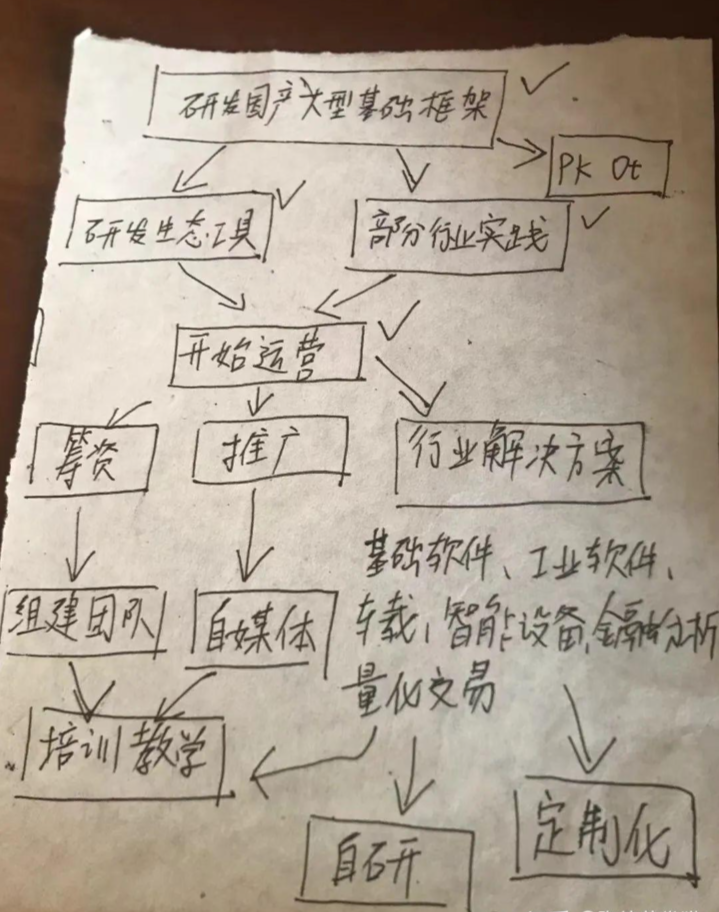 研发国产大型基础框架
PK Qt
研发生态工具
部分行业实践
开始运营
筹资
推广
行业解决方案
基础软件、工业软件、
车载、智能设备、金融分析
量化交易
组建团队
自媒体
培训教学
自研
定制化